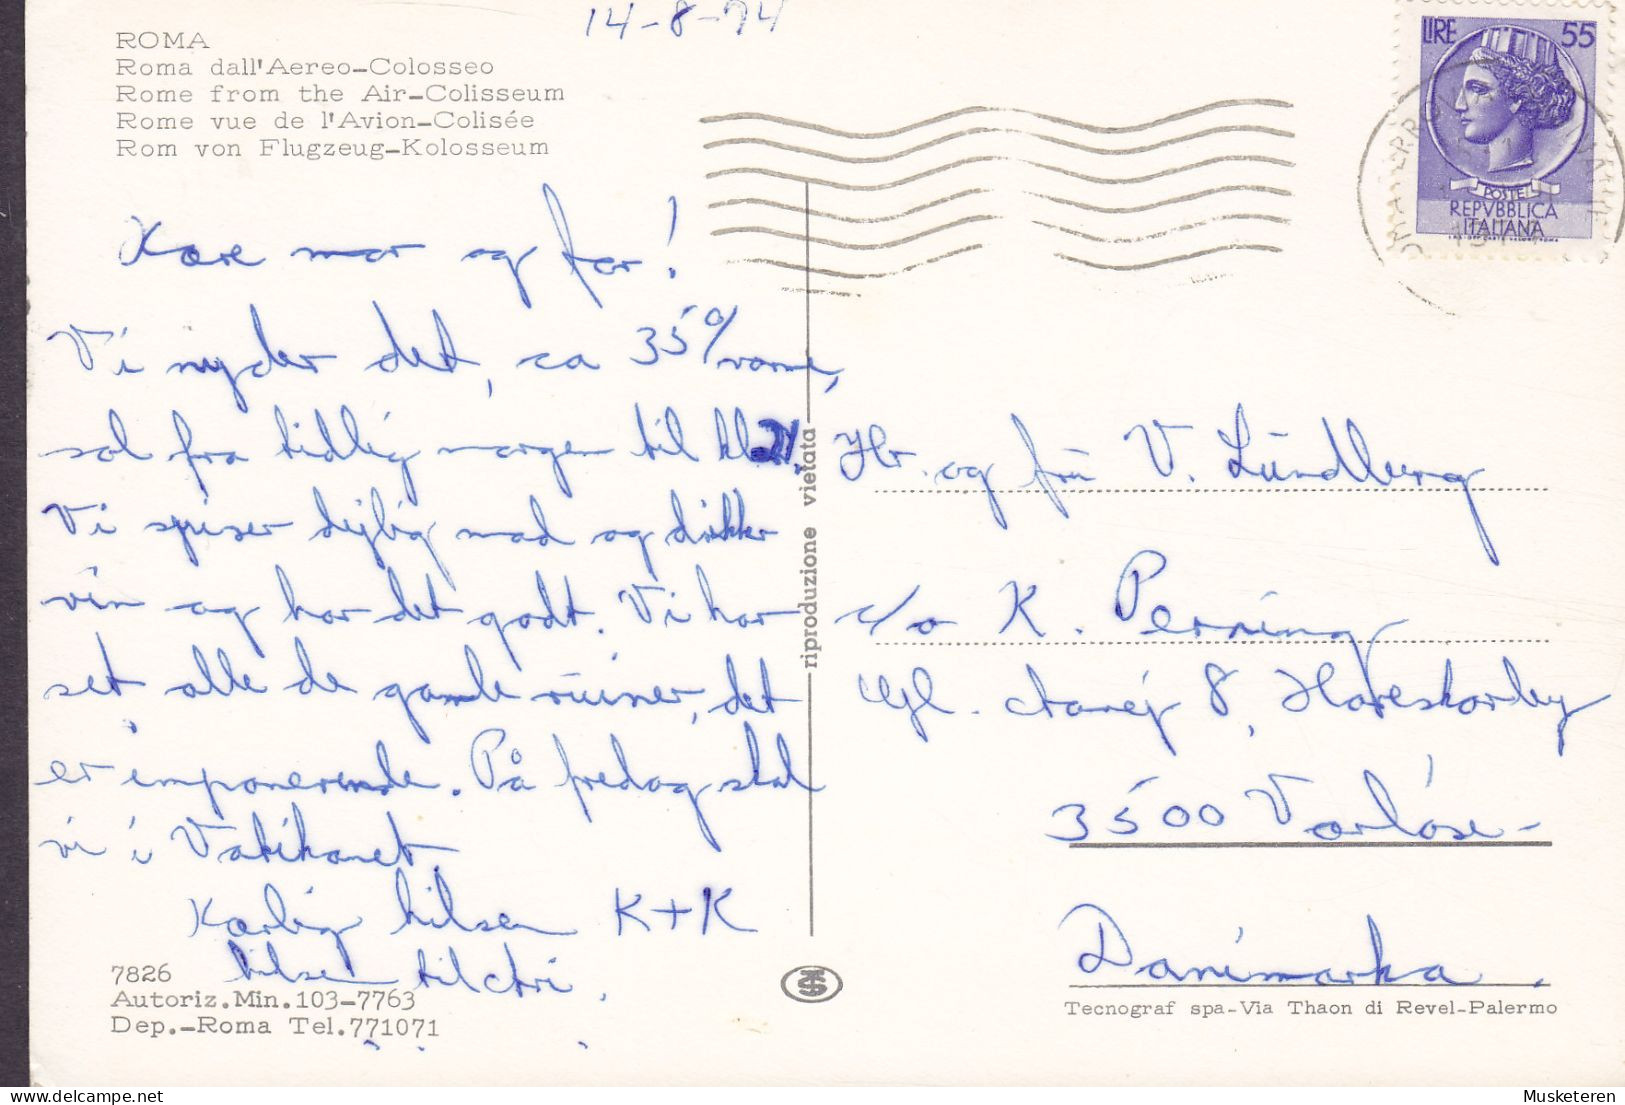 14-8-74
ROMA
Roma dall'Aereo-Colosseo
Rome from the Air-Colisseum
Rome vue de l'Avion-Colisée
Rom von Flugzeug-Kolosseum
LIRE 55
POSTE
REPVBBLICA
ITALIANA
Kære mor og far!
Vi nyder det, ca 35° varme,
sol fra tidlig morgen til kl 21.
Vi spiser dejlig mad og drikker
vin og har det godt. Vi har
set alle de gamle ruiner, det
er imponerende. På fredag skal
vi i Vatikanet.
Kærlig hilsen K+K
hilsen til
riproduzione vietata
Hr. og frú V. Lúndberg
c/o K. Perning
Gl. 8, Hareskovby
3500 Værløse
Danimarka.
7826
Autoriz.Min.103-7763
Dep.-Roma Tel.771071
Tecnograf spa-Via Thaon di Revel-Palermo
Musketeren @ delcampe.net